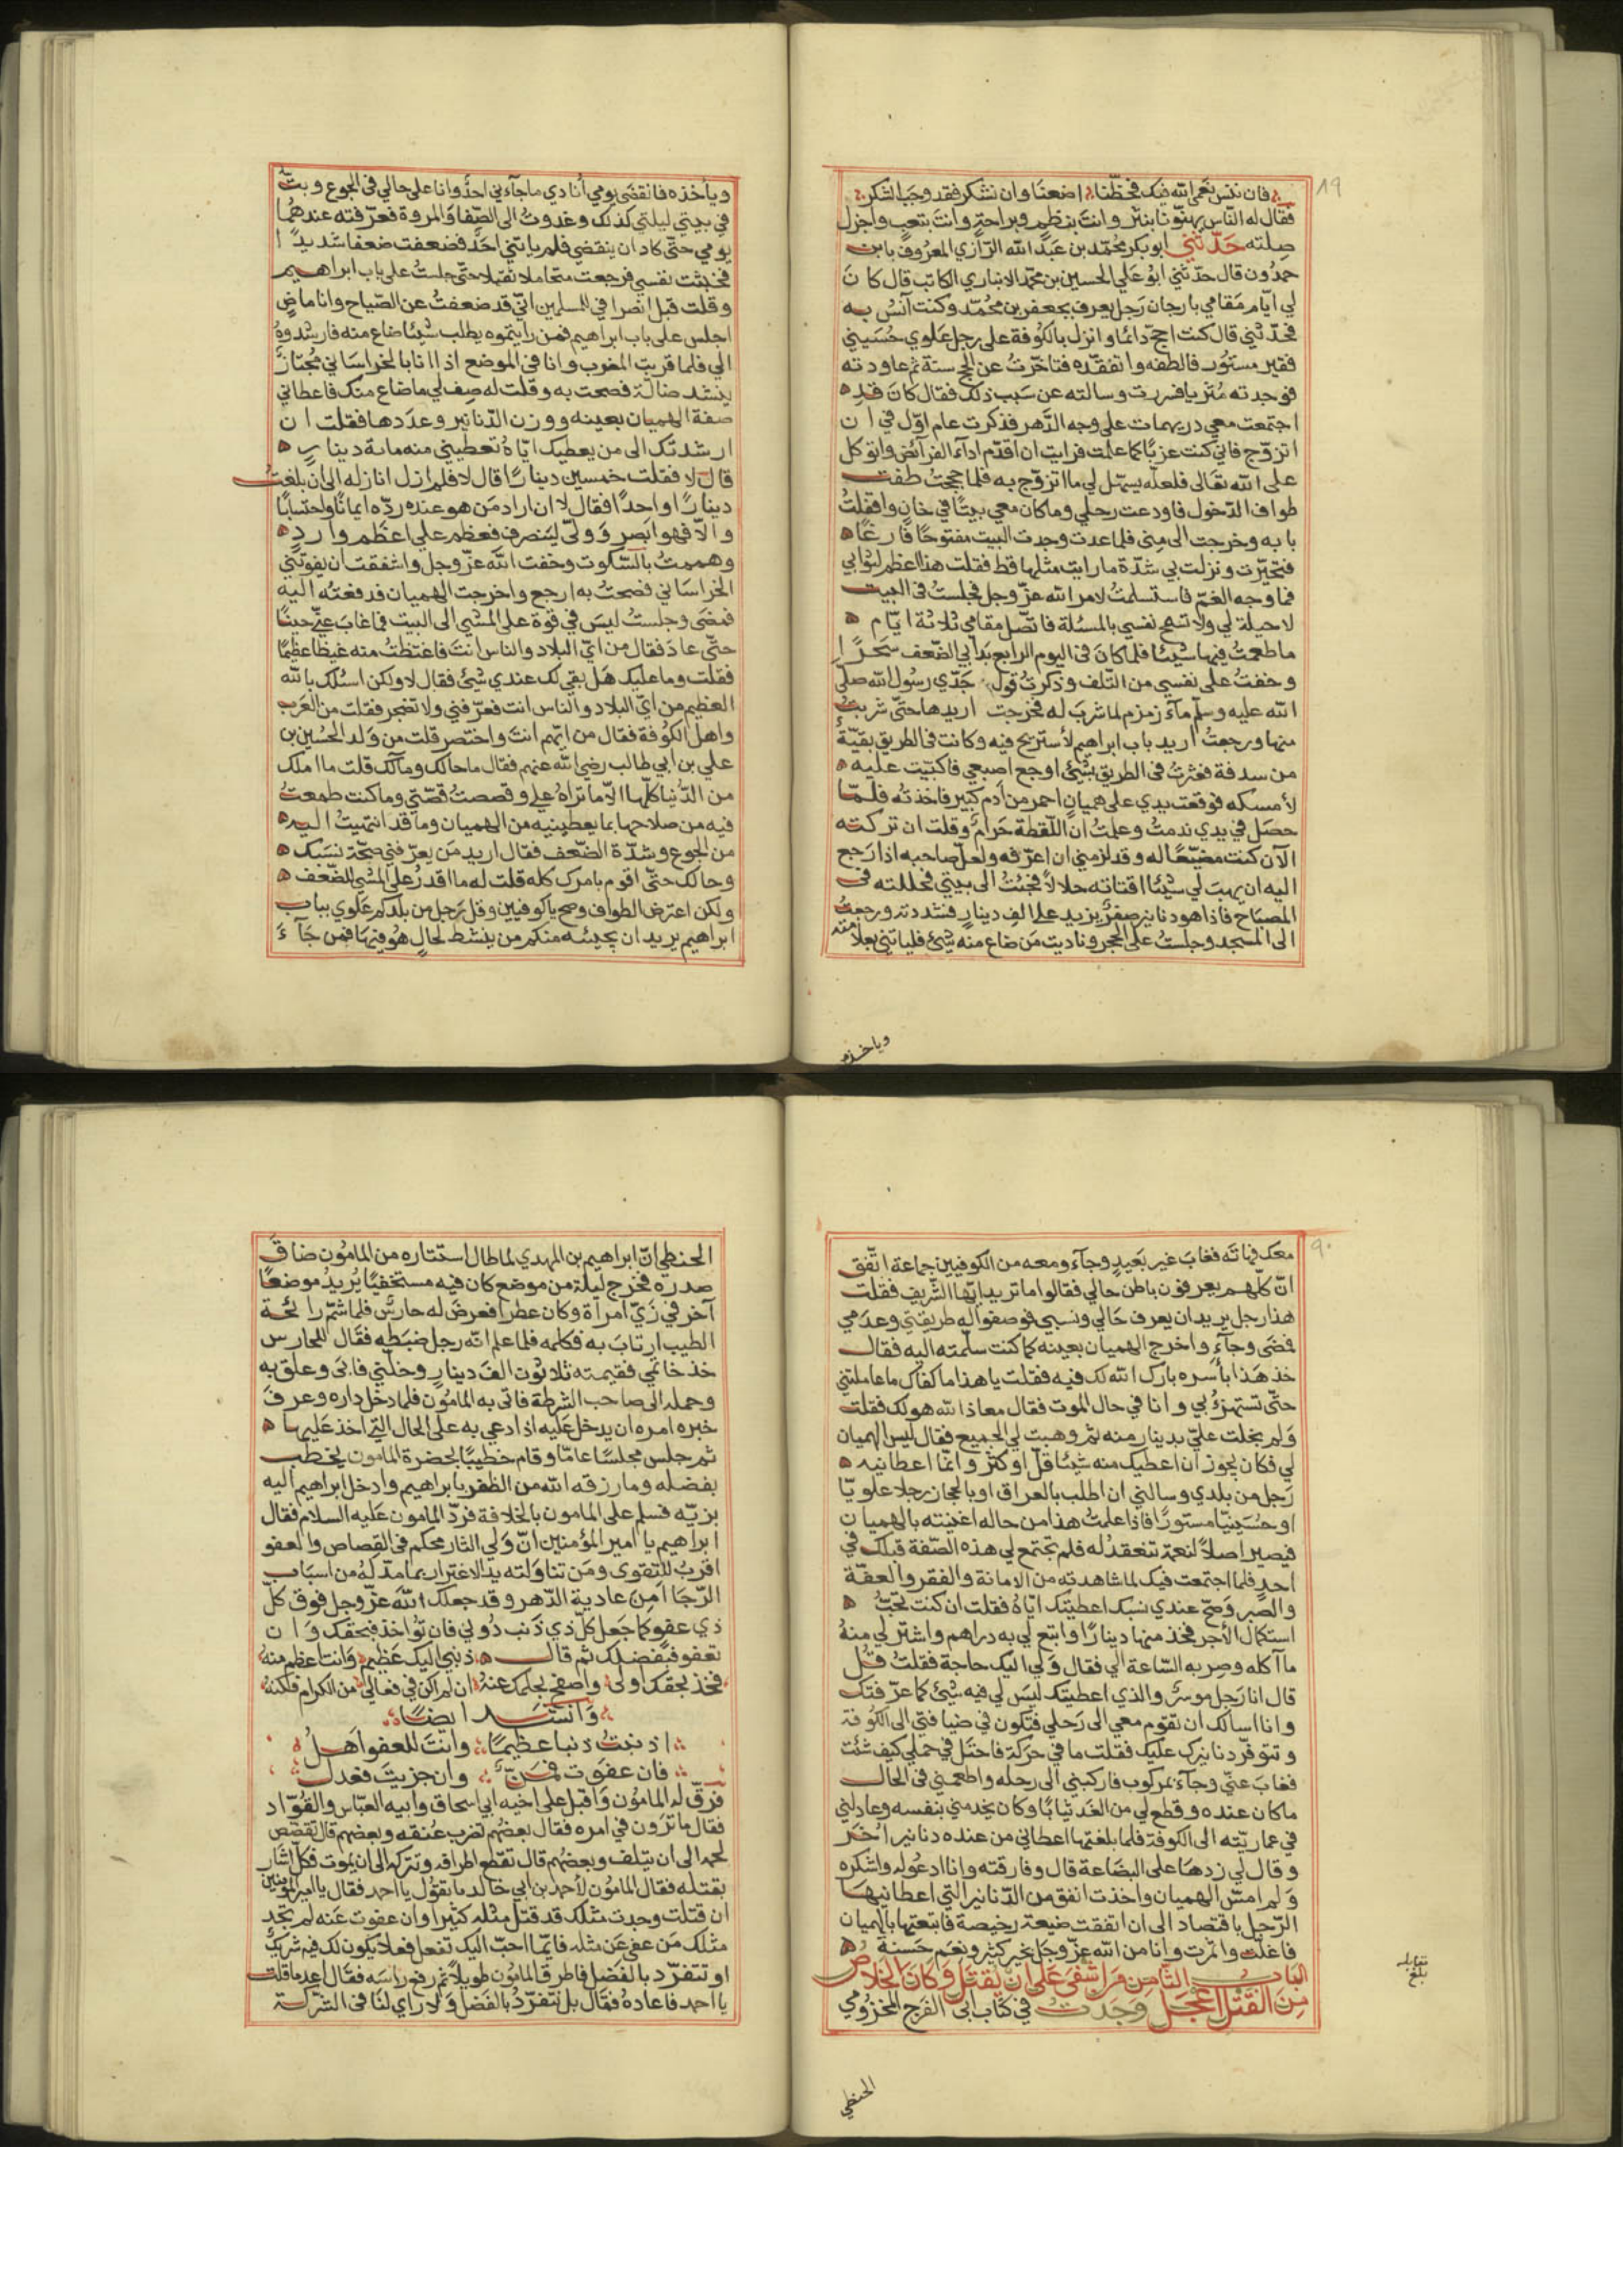 ٨٩
فان ننس نعم الله فيك فحظّنا اضعنا وان نشكر فقد وجب الشكر
فقال له الناس يهنّونا بنثر وانت بنظم وبراحة وانت بتعب واجزل
صلته حدّثني ابو بكر محمد بن عبد الله الرازي المعروف بابن
حمدون قال حدّثني ابو علي الحسين بن محمد الانباري الكاتب قال كان
لي ايام مقامي بارجان رجل يعرف بجعفر بن محمد وكنت آنس به
فحدّثني قال كنت احج دائما وانزل بالكوفة على رجل علوي حسيني
فقير مستور فالطفه واتفقّده فتاخّرت عن الحج سنة ثم عاودته
فوجدته مثريا فسررت وسالته عن سبب ذلك فقال كان قد
اجتمعت معي دريهمات على وجه الدهر فذكرت عام اوّل في ان
اتزوّج فاني كنت عزبًا كما علمت فرايت ان اقدّم اداء الفرائض واتوكل
على الله تعالى فلعلّه يسهّل لي ما اتزوّج به فلما حججت طفت
طواف الدخول فاودعت رحلي وما كان معي بيتًا في خان واقفلت
بابه وخرجت الى منى فلما عدت وجدت البيت مفتوحًا فارغًا
فتحيّرت ونزلت بي شدّة ما رايت مثلها قط فقلت هذا اعظم لثوابي
فما وجه الغمّ فاستسلمت لامر الله عزّ وجل فجلست في البيت
لا حيلة لي ولا تسمح نفسي بالمسئلة فاتّصل مقامي ثلاثة ايّام
ما طعمت فيها شيئا فلما كان في اليوم الرابع بدا بي الضعف سحرًا
وخفت على نفسي من التلف وذكرت قول جدّي رسول الله صلى
الله عليه وسلم ماء زمزم لما شرب له فخرجت اريدها حتى شربت
منها ورجعت اريد باب ابراهيم لأستريح فيه وكانت في الطريق بقيّة
من سدفة فعثرت في الطريق بشئ اوجع اصبعي فاكببت عليه
لأمسكه فوقعت يدي على هميان احمر من ادم كبير فاخذته فلمّا
حصل في يدي ندمت وعلمت ان اللقطة حرام وقلت ان تركته
الآن كنت مضيّعًا له وقد لزمني ان اعرّفه ولعل صاحبه اذا رجع
اليه ان يهب لي شيئا اقتاته حلالاً فجئت الى بيتي فحللته في
المصباح فاذا هو دنانير صفر يزيد على الف دينار فشددته ورجعت
الى المسجد وجلست على الحجر وناديت من ضاع منه شئ فلياتني بعلامته
وياخذه
وياخذه فانقضى يومي أنادي ما جاءني احد وانا على حالي في الجوع وبتّ
في بيتي ليلتي كذلك وغدوت الى الصفا والمروة فعرّفته عندهما
يومي حتى كاد ان ينقضي فلم ياتني احد فضعفت ضعفا شديدًا
فخشت نفسي فرجعت متحاملا ثقيلا حتى جلست على باب ابراهيم
وقلت قبل انصرافي للمسلمين انّي قد ضعفت عن الصياح وانا ماضٍ
اجلس على باب ابراهيم فمن رايتموه يطلب شيئا ضاع منه فارشدوه
الي فلما قربت المغرب وانا في الموضع اذا انا بالخراساني مجتازً
ينشد ضالّة فصحت به وقلت له صف لي ما ضاع منك فاعطاني
صفة الهميان بعينه ووزن الدنانير وعددها فقلت ان
ارشدتك الى من يعطيك ايّاه تعطيني منه مائة دينار
قال لا فقلت خمسين دينارًا قال لا فلم ازل انازله الى ان بلغت
دينارًا واحدًا فقال لا ان اراد من هو عنده ردّه ايمانًا واحتسابًا
والّا فهو ابصر وولّى لينصرف فعظم علي اعظم وارد
وهممت بالسكوت وخفت الله عزّ وجل واشفقت ان يفوتني
الخراساني فصحت به ارجع واخرجت الهميان فدفعته اليه
فمضى وجلست ليس في قوة على المشي الى البيت فما غاب عنّي حينًا
حتى عاد فقال من ايّ البلاد والناس انت فاغتظت منه غيظا عظيمًا
فقلت وما عليك هل بقي لك عندي شئ فقال لا ولكن اسئلك بالله
العظيم من ايّ البلاد والناس انت فعرّفني ولا تضجر فقلت من العرب
واهل الكوفة فقال من ايّهم انت واختصر قلت من ولد الحسين بن
علي بن ابي طالب رضي الله عنهم فقال ما حالك ومالك قلت ما املك
من الدنيا كلّها الّا ما تراه علي وقصصت قصّتي وما كنت طمعت
فيه من صلاحها بما يعطينيه من الهميان وما قد انتهيت اليه
من الجوع وشدّة الضعف فقال اريد من يعرّفني صحّة نسبك
وحالك حتى اقوم بامرك كله قلت له ما اقدر على المشي للضعف
ولكن اعترض الطواف وصح يا كوفيين وقل رجل من بلدكم علوي بباب
ابراهيم يريد ان يجيئه منكم من ينشط لحال هو فيها فمن جاء
٩٠
معك فهاته فغاب غير بعيد وجاء ومعه من الكوفيين جماعة اتّفق
انّ كلّهم يعرفون باطن حالي فقالوا ما تريد ايّها الشريف فقلت
هذا رجل يريد ان يعرف حالي ونسبي فوصفوا له طريقتي وعدمي
فمضى وجاء واخرج الهميان بعينه كما كنت سلّمته اليه فقال
خذ هذا بأسره بارك الله لك فيه فقلت يا هذا ما كفاك ما عاملتني
حتى تستهزئ بي وانا في حال الموت فقال معاذ الله هو لك فقلت
ولم بخلت عليّ بدينار منه ثم وهبت لي الجميع فقال ليس الهميان
لي فكان يجوز ان اعطيك منه شيئا قلّ او كثر وانّما اعطانيه
رجل من بلدي وسالني ان اطلب بالعراق او بالحجاز رجلا علويًّا
او حسينيّا مستورًا فاذا علمت هذا من حاله اغنيته بالهميان
فيصير اصلاً لنعمة تنعقد له فلم تجتمع لي هذه الصّفة قبلك في
احد فلما اجتمعت فيك لما شاهدته من الامانة والفقر والعفّة
والصبر وصح عندي نسبك اعطيتك ايّاه فقلت ان كنت تحبّ
استكمال الأجر فخذ منها دينارًا وابتع لي به دراهم واشتر لي منه
ما آكله وصر به الساعة الي فقال ولي اليك حاجة فقلت قل
قال انا رجل موسر والذي اعطيتك ليس لي فيه شئ كما عرّفتك
وانا اسالك ان تقوم معي الى رحلي فتكون في ضيافتي الى الكوفة
وتتوفّر دنانيرك عليك فقلت ما في حركة فاحتل في حملي كيف شئت
فغاب عنّي وجاء بمركوب فاركبني الى رحله واطعمني في الحال
ما كان عنده وقطع لي من الغد ثيابًا وكان يخدمني بنفسه وعادلني
في عماريّته الى الكوفة فلما بلغتها اعطاني من عنده دنانير أخر
وقال لي زدها على البضاعة قال وفارقته وانا ادعو له واشكره
ولم امسّ الهميان واخذت انفق من الدنانير التي اعطانيها
الرجل باقتصاد الى ان اتفقت ضيعة رخيصة فابتعتها بالهميان
فاغلّت واثمرت وانا من الله عزّ وجل بخير كثير ونعم حسنة
الباب الثامن فمن اشفى على ان يقتل وكان الخلاص
من القتل اعجل وجدت في كتاب ابى الفرج المخزومي
بلغ مقابله
الحنطي
الحنطي انّ ابراهيم بن المهدي لما طال استتاره من المامون ضاق
صدره فخرج ليلة من موضع كان فيه مستخفيًا يريد موضعًا
آخر في زيّ امراة وكان عطرا فعرض له حارس فلما شمّ رائحة
الطيب ارتاب به فكلمه فلما علم انّه رجل ضبطه فقال للحارس
خذ خاتمي فقيمته ثلاثون الف دينار وخلّني فابى وعلق به
وحمله الى صاحب الشرطة فاتى به المامون فلما دخل داره وعرف
خبره امره ان يدخل عليه اذا دعي به على الحال التي اخذ عليها
ثم جلس مجلسًا عامّا وقام خطيبًا بحضرة المامون يخطب
بفضله وما رزقه الله من الظفر بابراهيم وادخل ابراهيم اليه
بزيّه فسلم على المامون بالخلافة فردّ المامون عليه السلام فقال
ابراهيم يا امير المؤمنين انّ ولي الثار محكم في القصاص والعفو
اقرب للتقوى ومن تناولته يد الاغترار بما مدّ له من اسباب
الرّجا امن عادية الدهر وقد جعلك الله عزّ وجل فوق كلّ
ذي عفو كما جعل كلّ ذي ذنب دوني فان تؤاخذ فبحقك وان
تعفو فبفضلك ثم قال ذنبي اليك عظيم وانت اعظم منه
فخذ بحقك اولى واصفح بحلمك عنه ان لم اكن في فعالي من الكرام فكنه
وانشد ايضًا
اذنبت ذنبا عظيمًا وانت للعفو اهل
فان عفوت فمنّ وان جزيت فعدل
فرقّ له المامون واقبل على اخيه ابي اسحاق وابيه العباس والقوّاد
فقال ما ترون في امره فقال بعضهم تضرب عنقه وبعضهم قال تقصّص
لحمه الى ان يتلف وبعضهم قال تقطع اطرافه وتتركه الى ان يموت فكل اشار
بقتله فقال المامون لأحمد بن ابي خالد ما تقول يا احمد فقال يا امير المؤمنين
ان قتلت وجدت مثلك قد قتل مثله كثيرا وان عفوت عنه لم تجد
مثلك من عفى عن مثله فايّما احبّ اليك تفعل فعلا يكون لك فيه شريك
او تتفرّد بالفضل فاطرق المامون طويلاً ثم رفع راسه فقال اعد ما قلت
يا احمد فاعاده فقال بل نتفرّد بالفضل ولا راي لنا في الشركة